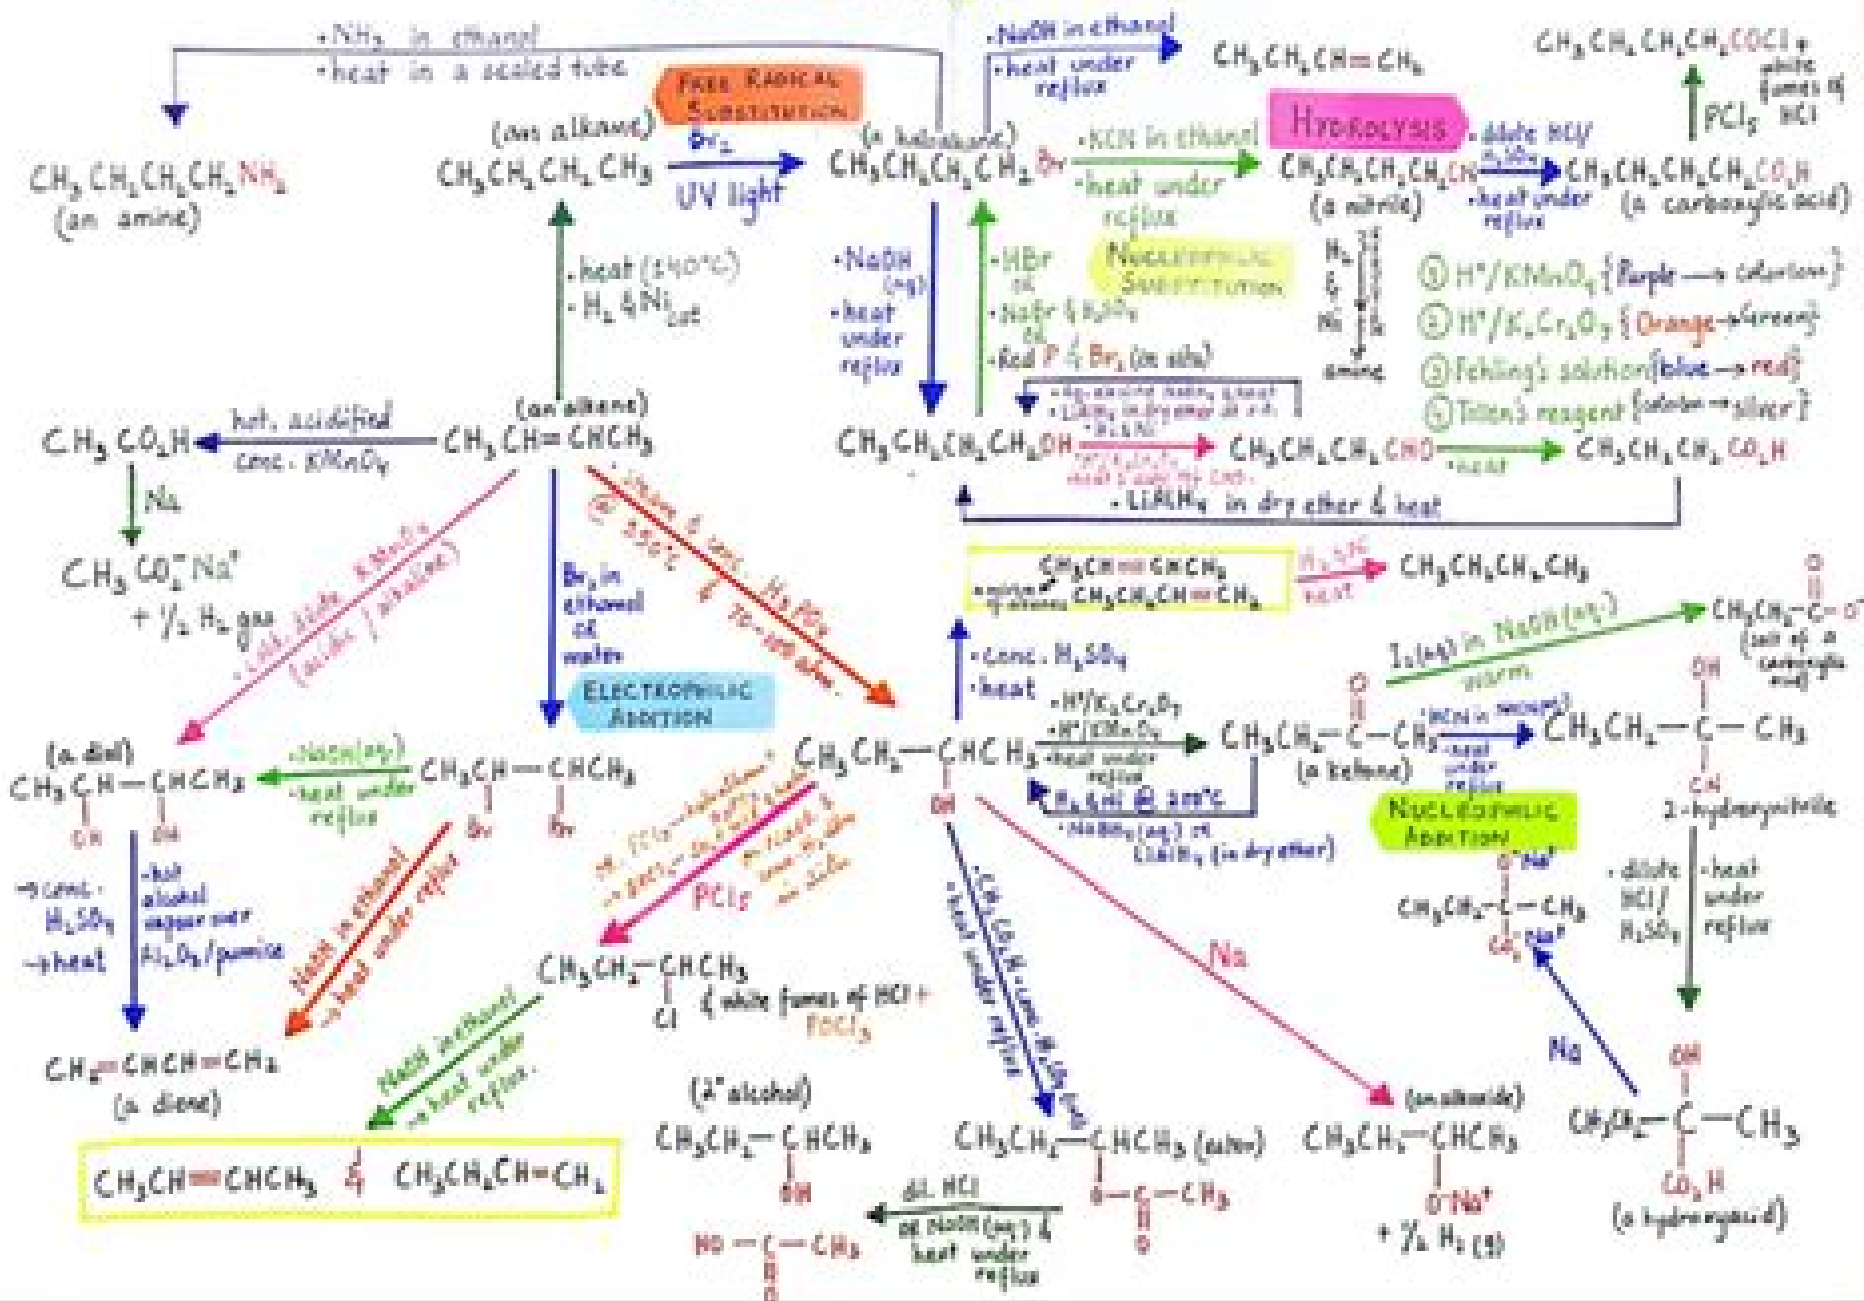 •NH₃ in ethanol
•heat in a sealed tube
FREE RADICAL
SUBSTITUTION
•NaOH in ethanol
•heat under
reflux
CH₃CH₂CH=CH₂
CH₃CH₂CH₂CH₂COCl +
white
fumes of
HCl
PCl₅
HYDROLYSIS
CH₃CH₂CH₂CH₂NH₂
(an amine)
(an alkane)
CH₃CH₂CH₂CH₃
Br₂
UV light
(a haloalkane)
CH₃CH₂CH₂CH₂Br
•KCN in ethanol
•heat under
reflux
CH₃CH₂CH₂CH₂CN
(a nitrile)
•dilute HCl/
H₂SO₄
•heat under
reflux
CH₃CH₂CH₂CH₂CO₂H
(a carboxylic acid)
•heat (140°C)
•H₂ & Ni cat
•NaOH
(aq)
•heat
under
reflux
•HBr
or
•NaBr & H₂SO₄
or
•Red P & Br₂ (in situ)
NUCLEOPHILIC
SUBSTITUTION
H₂
&
Ni
amine
① H⁺/KMnO₄ {Purple → colorless}
② H⁺/K₂Cr₂O₇ {Orange→Green}
③ Fehling's solution {blue→red}
④ Tollen's reagent {colorless→silver}
CH₃CO₂H
hot, acidified
conc. KMnO₄
(an alkene)
CH₃CH=CHCH₃
CH₃CH₂CH₂CH₂OH
CH₃CH₂CH₂CHO
•heat
CH₃CH₂CH₂CO₂H
•LiAlH₄ in dry ether & heat
Na
CH₃CO₂⁻Na⁺
+ ½ H₂ gas
•cold, dilute KMnO₄
(acidic / alkaline)
Br₂ in
ethanol
or
water
•steam & conc. H₃PO₄
@ 250°C & 70-100 atm.
ELECTROPHILIC
ADDITION
CH₃CH=CHCH₃
CH₃CH₂CH=CH₂
heat
CH₃CH₂CH₂CH₃
•conc. H₂SO₄
•heat
I₂(aq) in NaOH(aq.)
warm
O
CH₃CH₂-C-O⁻
(salt of a
carboxylic
acid)
(a diol)
CH₃CH-CHCH₃
OH OH
•NaOH(aq.)
•heat under
reflux
CH₃CH-CHCH₃
Br Br
CH₃CH₂-CHCH₃
OH
•H⁺/K₂Cr₂O₇
•H⁺/KMnO₄
•heat under
reflux
O
CH₃CH₂-C-CH₃
(a ketone)
H₂ & Ni @ 200°C
•NaBH₄(aq.) or
LiAlH₄ (in dry ether)
•heat
under
reflux
OH
CH₃CH₂-C-CH₃
CN
2-hydroxynitrile
NUCLEOPHILIC
ADDITION
→conc.
H₂SO₄
→heat
•hot
alcohol
vapour over
Al₂O₃/pumice
NaOH in ethanol
→ heat under reflux
PCl₅
in situ
CH₃CH₂-CHCH₃
Cl
& white fumes of HCl +
POCl₃
•CH₃CO₂H + conc. H₂SO₄
•heat under reflux
Na
O⁻Na⁺
CH₃CH₂-C-CH₃
CO₂⁻Na⁺
•dilute
HCl/
H₂SO₄
•heat
under
reflux
Na
CH₂=CHCH=CH₂
(a diene)
NaOH in ethanol
→heat under
reflux.
CH₃CH=CHCH₃ & CH₃CH₂CH=CH₂
(2° alcohol)
CH₃CH₂-CHCH₃
OH
HO-C-CH₃
O
dil. HCl
or NaOH(aq.) &
heat under
reflux
CH₃CH₂-CHCH₃ (ester)
O-C-CH₃
O
(an alkoxide)
CH₃CH₂-CHCH₃
O⁻Na⁺
+ ½ H₂ (g)
OH
CH₃CH₂-C-CH₃
CO₂H
(a hydroxyacid)